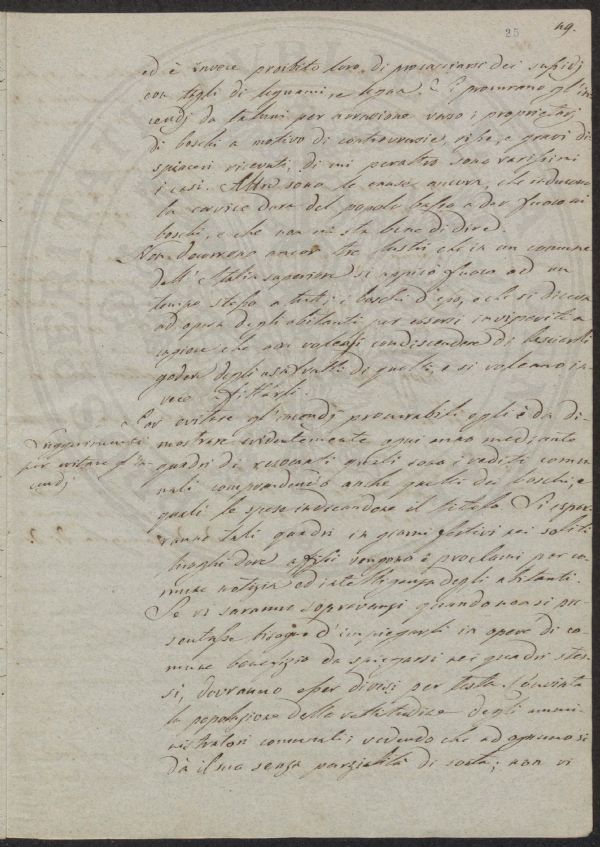 25 49.
ed è invece proibito loro di procacciarsi dei sussidj
con tagli di legnami, e legna. Si procurano gl'in
cendj da taluni per avversione verso i proprietarj
di boschi a motivo di controversie, risse, e gravi di
spiaceri ricevuti, di cui peraltro sono rarissimi
i casi. Altre sono le cause ancora, che inducono
la cervice dura del popolo basso a dar fuoco ai
boschi, e che non mi sta bene di dire.
Non decorrono ancor tre lustri che in un comune
dell'Italia superiore si appiccò fuoco ad un
tempo stesso a tutti i boschi d'esso, e che si diceva
ad opera degli abitanti per essersi inviperiti a
cagione che non volevasi condiscendere di lasciarli
godere degli usufrutti di quelli, e si volevano in
vece affittarli.
Suggerimenti
per evitare gl'in
cendj
Per evitare gl'incendj procurabili egli è da di
mostrare evidentemente ogni anno mediante
quadri di resoconti quali sono i redditi comu
nali comprendendo anche quelli dei boschi, e
quali le spese indicandone il titolo. Si espor
ranno tali quadri in giorni festivi nei soliti
luoghi dove affissi vengono i proclami per co
mune notizia ed intelligenza degli abitanti.
Se vi saranno sopravanzi quando non si pre
sentasse bisogno d'impiegarli in opere di co
mune beneficio da spiegarsi nei quadri stes
si, dovranno esser divisi per testa. Convinta
la popolazione della rettitudine degli ammi
nistratori comunali; vedendo che ad ognuno si
dà il suo senza parzialità di sorta; non vi